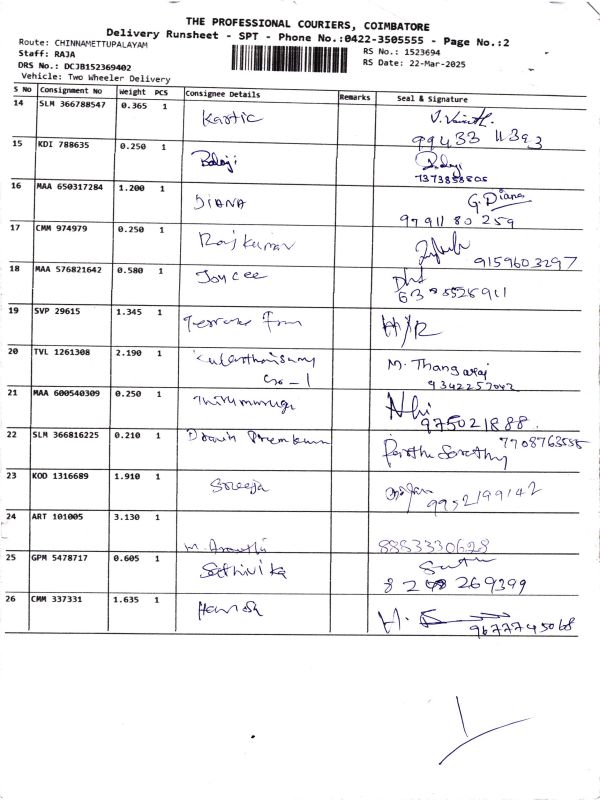 THE PROFESSIONAL COURIERS, COIMBATORE
Delivery Runsheet - SPT - Phone No.:0422-3505555 - Page No.:2
Route: CHINNAMETTUPALAYAM
Staff: RAJA
DRS No.: DCJB152369402
Vehicle: Two Wheeler Delivery
RS No.: 1523694
RS Date: 22-Mar-2025
S No Consignment No Weight PCS Consignee Details Remarks Seal & Signature
14 SLM 366788547 0.365 1 Kartic
99433 11393
15 KDI 788635 0.250 1 Balaji Balaji
7373858505
16 MAA 650317284 1.200 1 DIANA G. Diana
97911 80 259
17 CMM 974979 0.250 1 Rajkumar
9159603297
18 MAA 576821642 0.580 1 Joycee
19 SVP 29615 1.345 1
20 TVL 1261308 2.190 1 M. Thangaraj
9342257042
21 MAA 600540309 0.250 1 Thirumurugu
975021888
22 SLM 366816225 0.210 1 Premkumar 7708763555
Partha Sarathy
23 KOD 1316689 1.910 1 Sreeja
9952199142
24 ART 101005 3.130 1
8883330628
25 GPM 5478717 0.605 1 Sathivika
269399
26 CMM 337331 1.635 1 Harish H.
9677745068